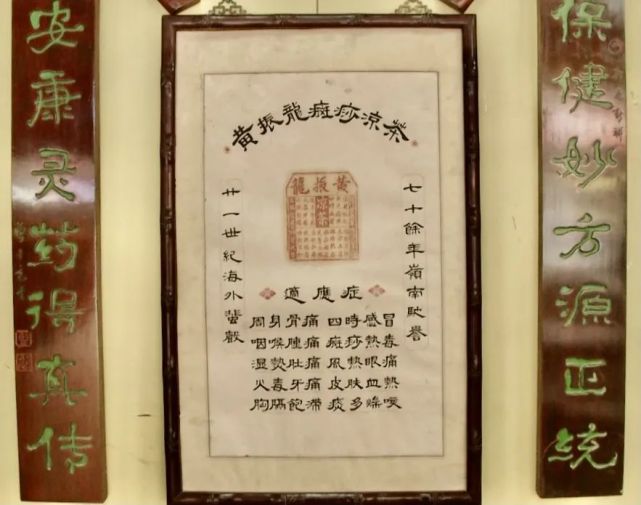 保健妙方源正统
安康灵药得真传
黃振龍癍痧涼茶
黃振龍
涼茶
七十餘年嶺南馳譽
廿一世紀海外蜚聲
適應症
周身骨痛四時感冒
咽喉腫痛癍痧熱毒
湿熱肚痛風熱眼痛
火毒牙痛皮肤血熱
胸膈飽滞痰多燥咳